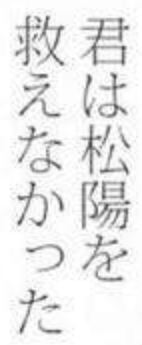 君は松陽を
救えなかった